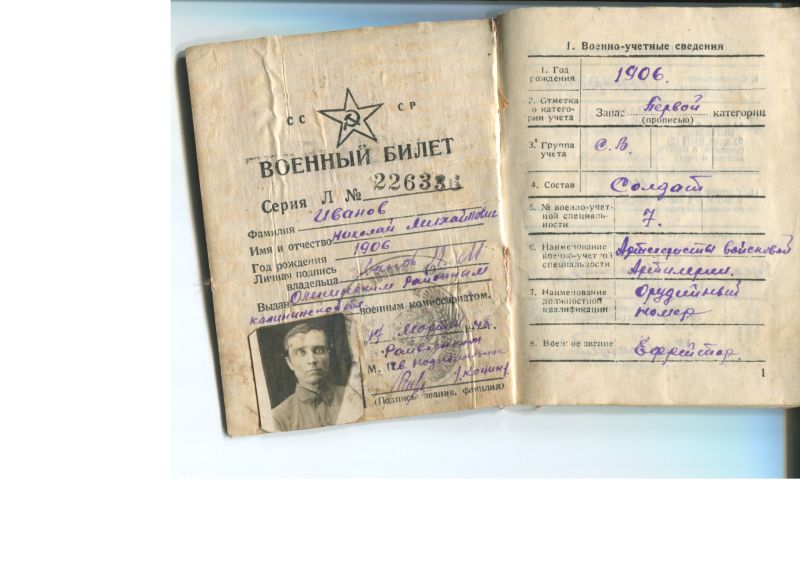 СС СР
ВОЕННЫЙ БИЛЕТ
Серия Л №
Фамилия Иванов
Имя и отчество Николай Михайлович
Год рождения 1906
Личная подпись
владельца
Выдан Оленинским Районным
военным комиссариатом.
17 Марта
М. П.
(Подпись, звание, фамилия)
1. Военно-учетные сведения
1. Год
рождения 1906.
2. Отметка
о катего-
рии учета Запас Первой категории
(прописью)
3. Группа
учета С.В.
4. Состав Солдат
5. № военно-учет-
ной специаль-
ности 7.
6. Наименование
военно-учетной
специальности Артилеристы войсковой
Артилерии.
7. Наименование
должностной
квалификации Орудийный
номер
8. Военное звание Ефрейтор.
1